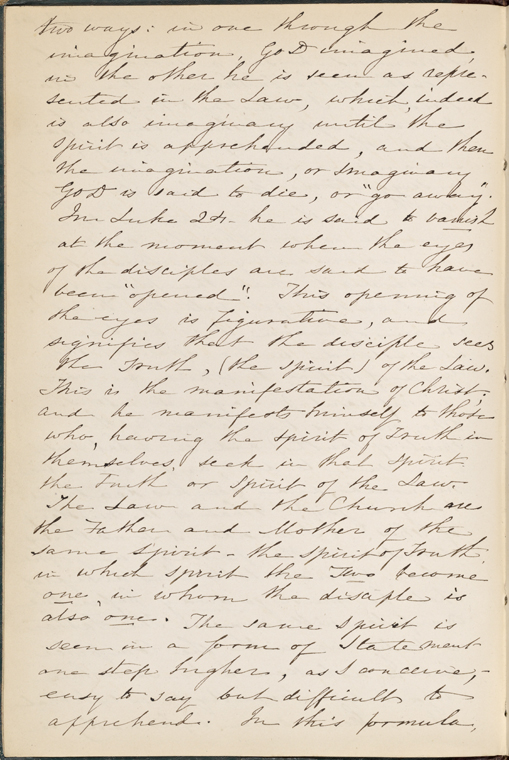 two ways: in one through the
imagination, GOD imagined,
in the other he is seen as repre-
sented in the Law, which, indeed
is also imaginary until the
spirit is apprehended, and then
the imagination, or imaginary
GOD is said to die, or "go away".
In Luke 24. he is said to vanish
at the moment when the eyes
of the disciples are said to have
been "opened". This opening of
the eyes is figurative, and
signifies that the disciple sees
the truth, (the spirit) of the Law.
This is the manifestation of Christ:
and he manifests himself to those
who, having the spirit of Truth in
themselves, seek in that spirit
the Truth or spirit of the Law.
The Law and the Church are
the Father and Mother of the
same spirit - the spirit of Truth,
in which spirit the Two become
one, in whom the disciple is
also one. The same spirit is
seen in a form of statement
one step higher, as I conceive,-
easy to say but difficult to
apprehend. In this formula,